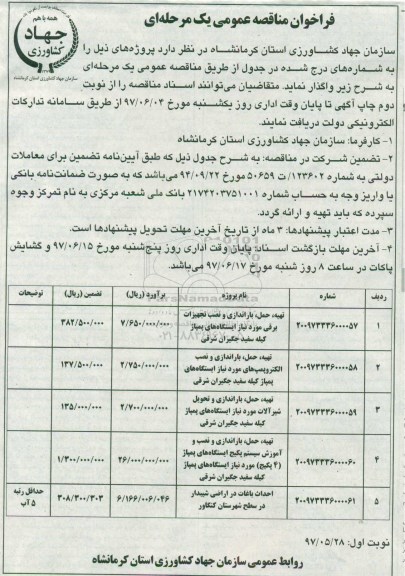 فراخوان مناقصه عمومی یک مرحله‌ای
همه با هم
جهاد
کشاورزی
سازمان جهاد کشاورزی استان کرمانشاه
سازمان جهاد کشـــاورزی استان کرمانشـــاه در نظر دارد پروژه‌های ذیل را
به شـماره‌های درج شده در جدول از طریق مناقصه عمومی یک مرحله‌ای
به شـرح زیر واگذار نماید. متقاضیان می‌توانند اسناد مناقصه را از نوبت
دوم چاپ آگهی تا پایان وقت اداری روز یکشـنبه مورخ ۹۷/۰۶/۰۴ از طریق سـامانه تدارکات
الکترونیکی دولت دریافت نمایند.
۱- کارفرما: سازمان جهاد کشاورزی استان کرمانشاه
۲- تضمین شرکت در مناقصه: به شـرح جدول ذیل که طبق آیین‌نامه تضمین برای معاملات
دولتی به شماره ۱۲۳۴۰۲/ت ۵۰۶۵۹ مورخ ۹۴/۰۹/۲۲ می‌باشد که به صورت ضمانت‌نامه بانکی
یا واریز وجه به حساب شماره ۲۱۷۴۲۰۳۷۵۱۰۰۱ بانک ملی شعبه مرکزی به نام تمرکز وجوه
سپرده که باید تهیه و ارائه گردد.
۳- مدت اعتبار پیشنهادها: ۳ ماه از تاریخ آخرین مهلت تحویل پیشنهادها است.
۴- آخرین مهلت بازگشت اسـناد: پایان وقت اداری روز پنج‌شنبه مورخ ۹۷/۰۶/۱۵ و گشایش
پاکات در ساعت ۸ روز شنبه مورخ ۹۷/۰۶/۱۷ می‌باشد.
ردیف شماره نام پروژه برآورد (ریال) تضمین (ریال) توضیحات
۱ ۲۰۰۹۷۳۳۳۶۰۰۰۰۵۷ تهیه، حمل، باراندازی و نصب تجهیزات برقی مورد نیاز ایستگاه‌های پمپاژ کیله سفید جگیران شرقی ۷/۶۵۰/۰۰۰/۰۰۰ ۳۸۲/۵۰۰/۰۰۰
۲ ۲۰۰۹۷۳۳۳۶۰۰۰۰۵۸ تهیه، حمل، باراندازی و نصب الکتروپمپ‌های مورد نیاز ایستگاه‌های پمپاژ کیله سفید جگیران شرقی ۲/۷۵۰/۰۰۰/۰۰۰ ۱۳۷/۵۰۰/۰۰۰
۳ ۲۰۰۹۷۳۳۳۶۰۰۰۰۵۹ تهیه، حمل، باراندازی و تحویل شیرآلات مورد نیاز ایستگاه‌های پمپاژ کیله سفید جگیران شرقی ۲/۷۰۰/۰۰۰/۰۰۰ ۱۳۵/۰۰۰/۰۰۰
۴ ۲۰۰۹۷۳۳۳۶۰۰۰۰۶۰ تهیه، حمل، باراندازی و نصب و آموزش سیستم پکیج ایستگاه‌های پمپاژ (۴ پکیج) مورد نیاز ایستگاه‌های پمپاژ کیله سفید جگیران شرقی ۲۶/۰۰۰/۰۰۰/۰۰۰ ۱/۳۰۰/۰۰۰/۰۰۰
۵ ۲۰۰۹۷۳۳۳۶۰۰۰۰۶۱ احداث باغات در اراضی شیبدار در سطح شهرستان کنگاور ۶/۱۶۶/۰۰۶/۰۴۶ ۳۰۸/۳۰۰/۳۰۳ حداقل رتبه ۵ آب
نوبت اول: ۹۷/۰۵/۲۸
روابط عمومی سازمان جهاد کشاورزی استان کرمانشاه